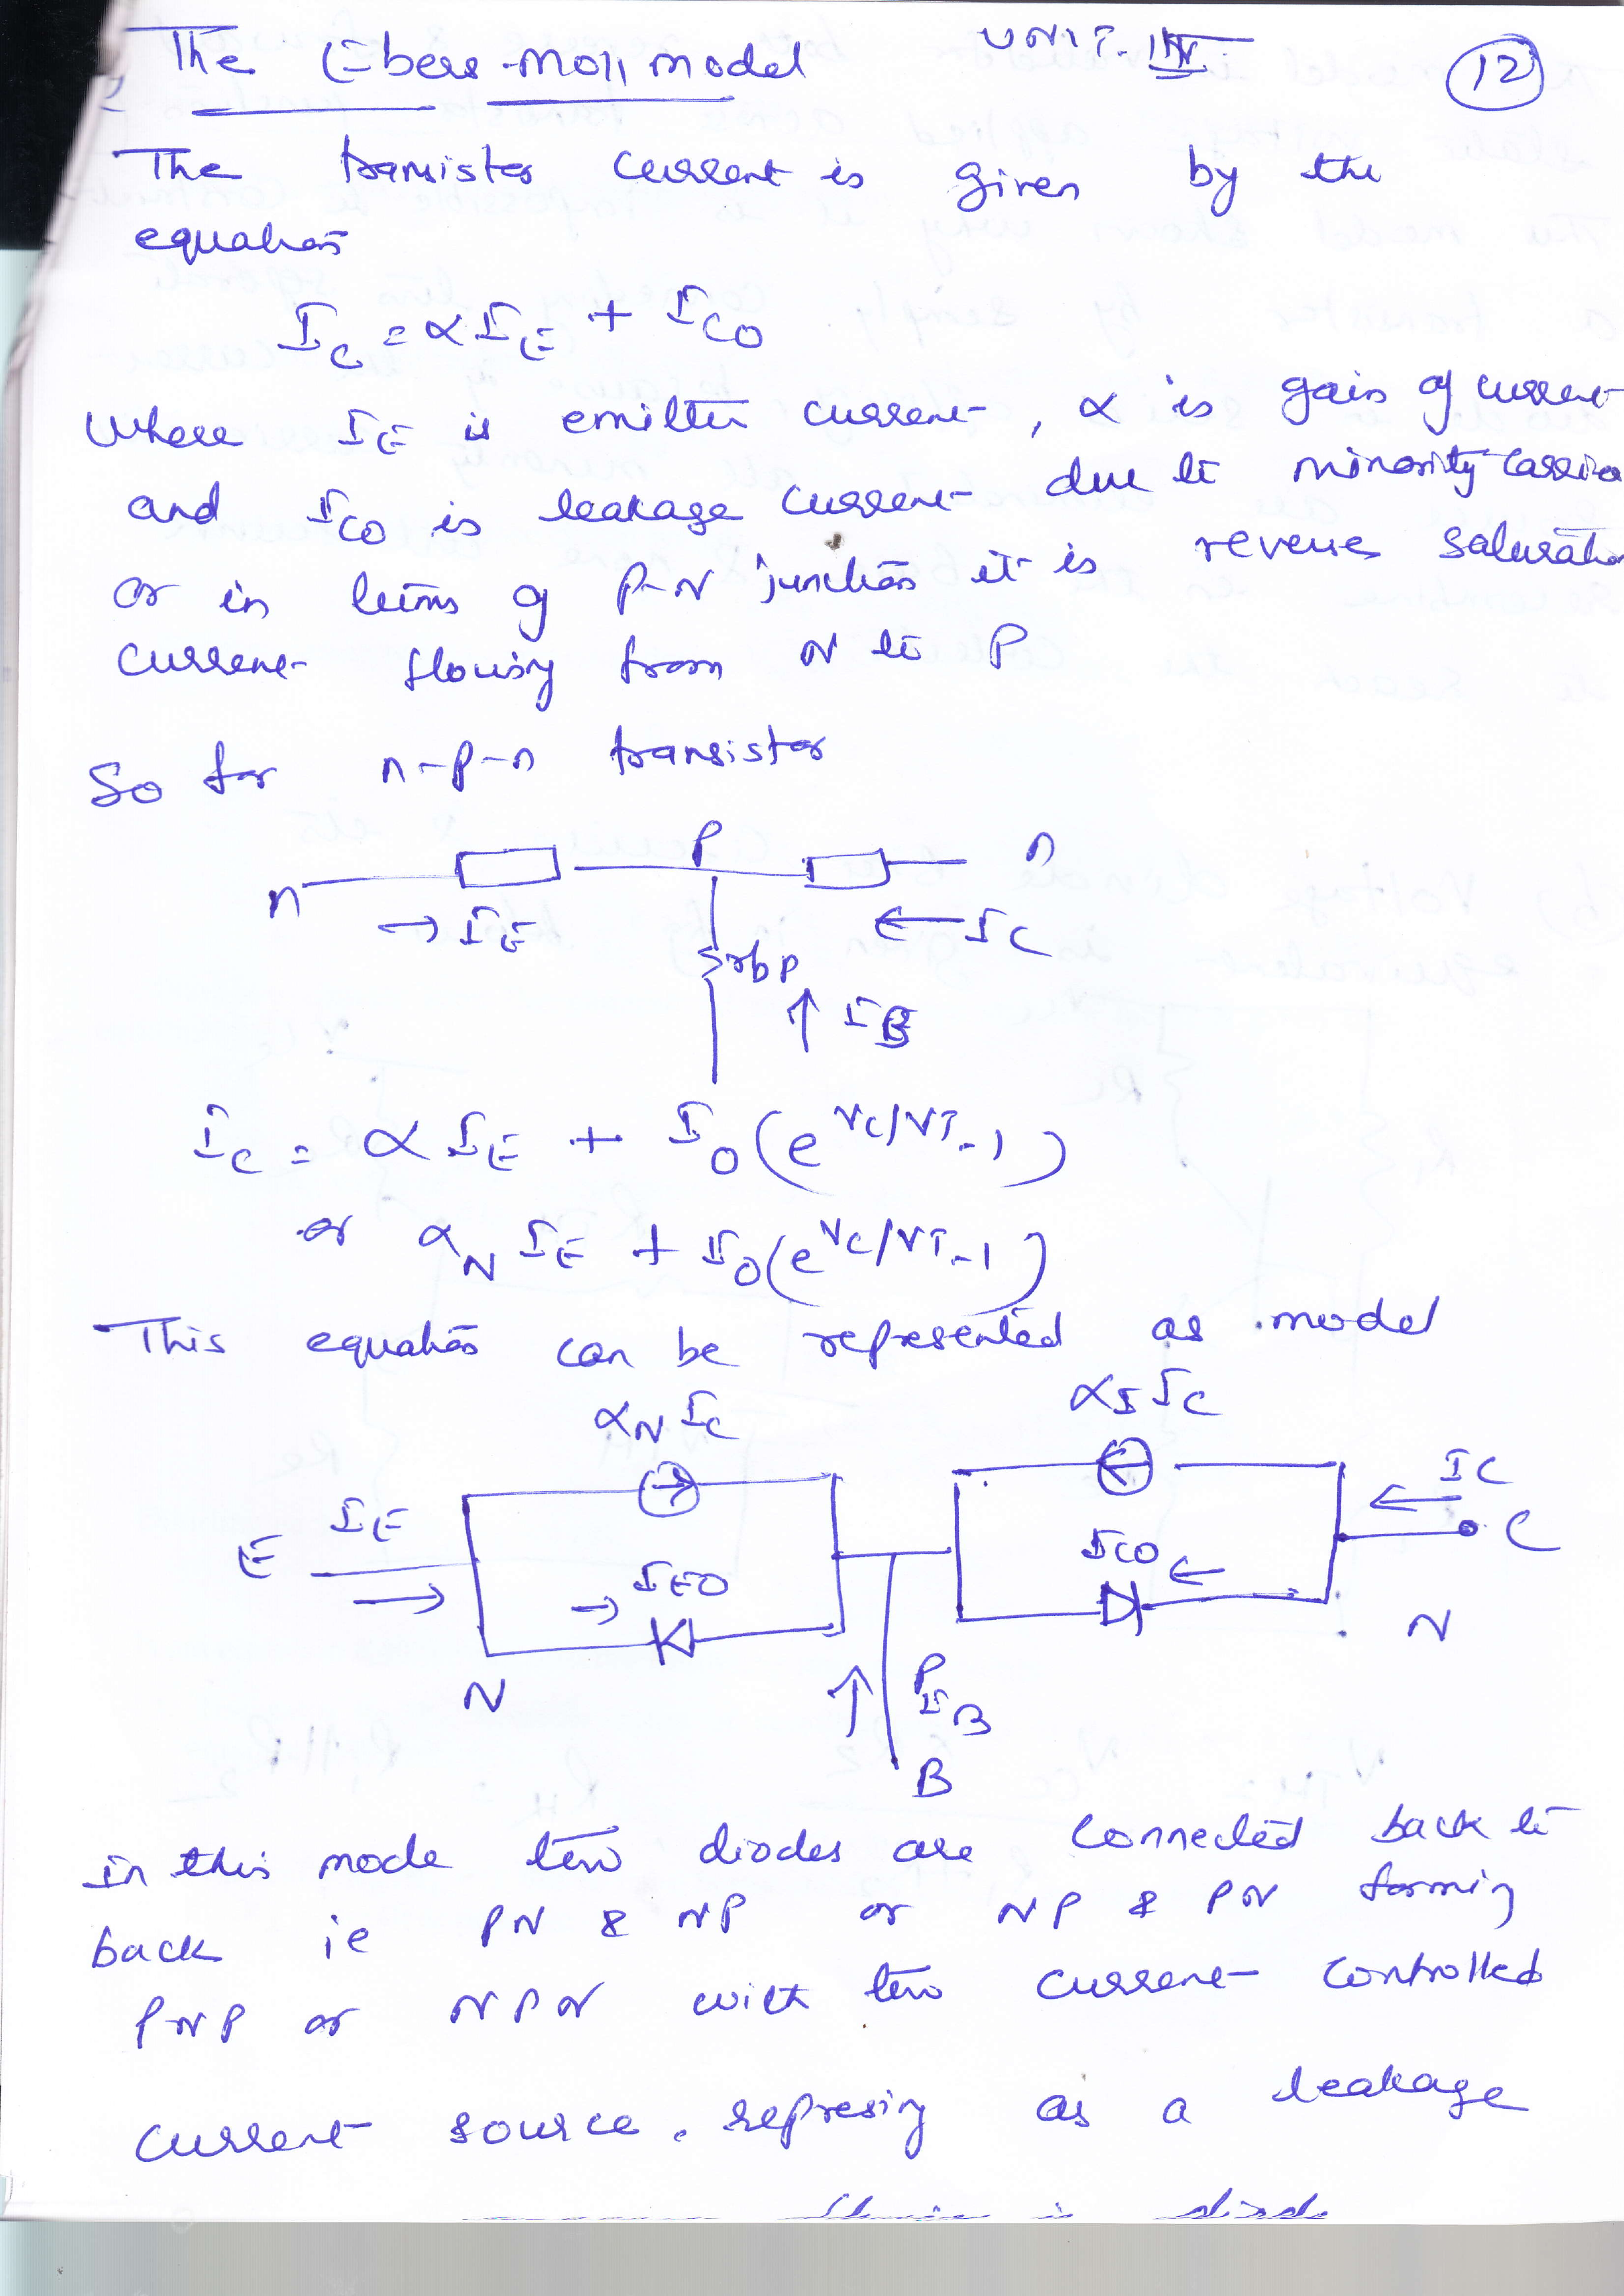 The Ebers-moll model UNIT-IV 12
The transistor current is given by the
equation
I_C = α I_E + I_CO
Where I_E is emitter current, α is gain of current
and I_CO is leakage current due to minority carrier
or in terms of P-N junction it is reverse saturation
current flowing from N to P
So for n-p-n transistor
n P n
→ I_E ← I_C
rbp
↑ I_B
I_C = α I_E + I_O (e^{VC/VT} -1)
or α_N I_E + I_O (e^{VC/VT} -1)
This equation can be represented as model
α_N I_C α_I I_C
E I_E → I_EO I_CO ← I_C C
N P N
↑ I_B
B
In this mode two diodes are connected back to
back ie PN & NP or NP & PN forming
PNP or NPN with two current controlled
current source. represing as a leakage